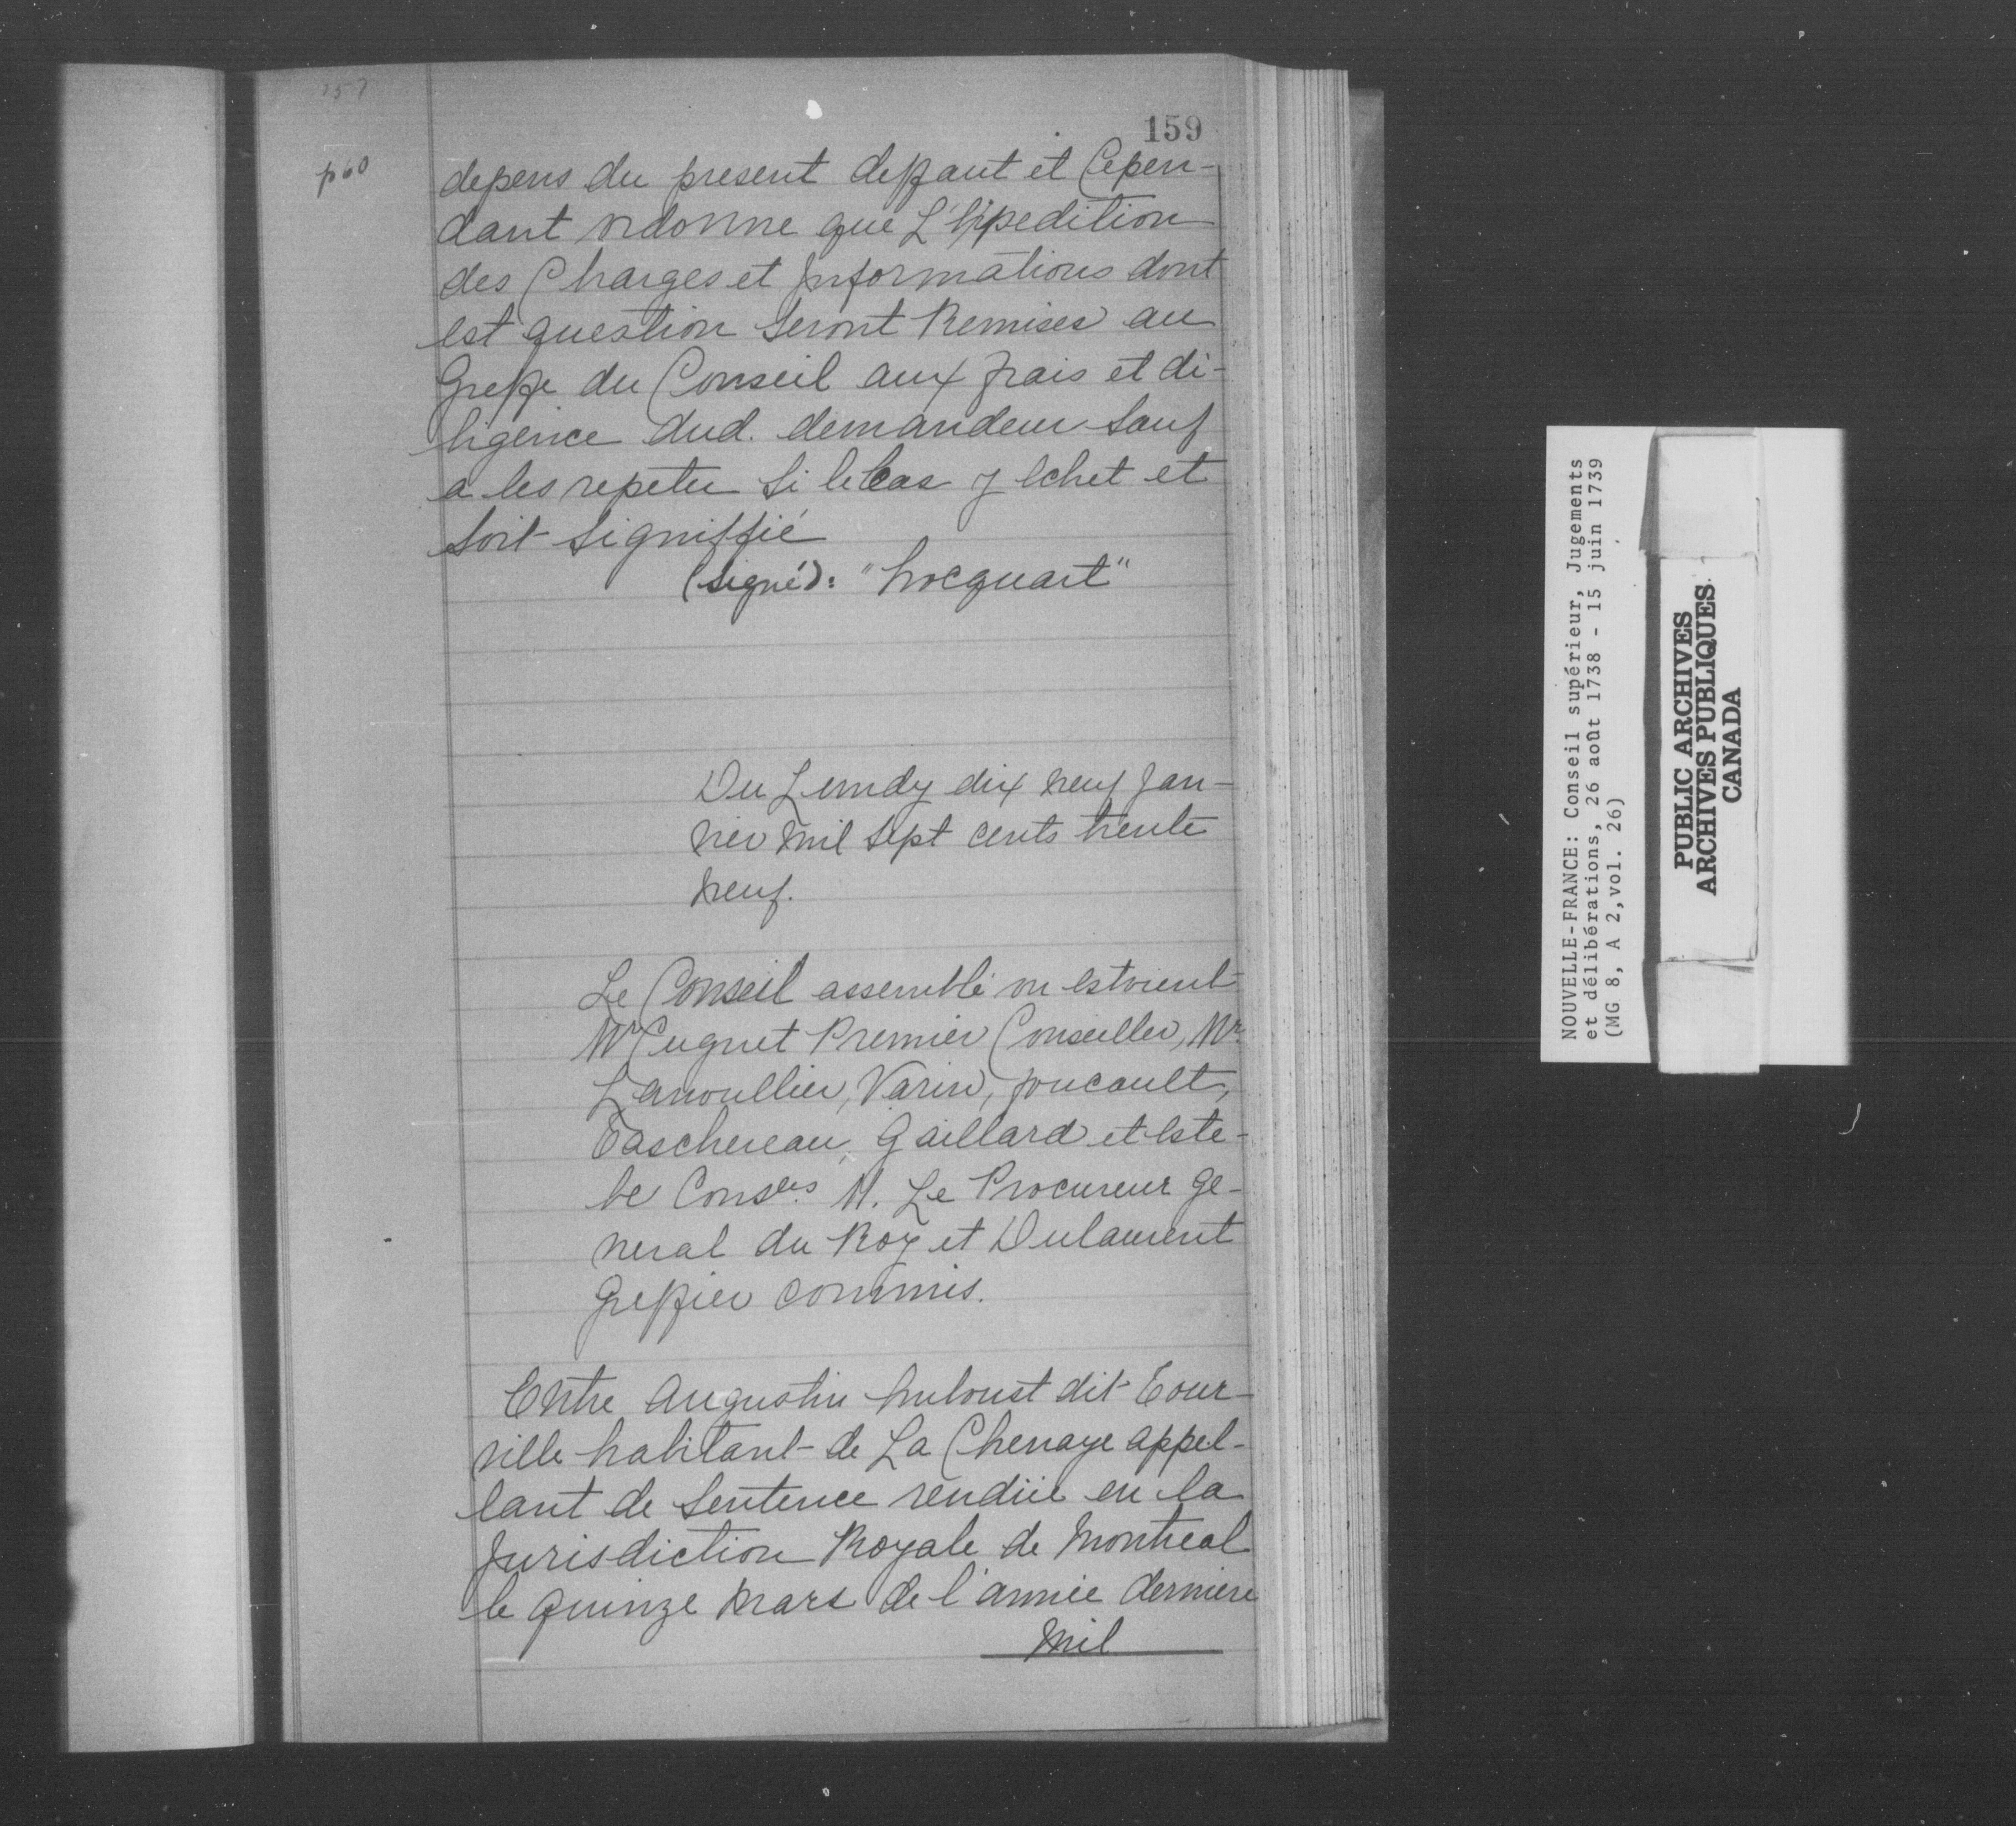 257
159
p60
depens du present deffaut et Cepen-
dant ordonne que L'Expedition
des Charges et Informations dont
est question Seront Remises au
Greffe du Conseil aux frais et di-
ligence dud. demandeur Sauf
a les repeter Si le Cas y Echet et
Soit Signiffié
(Signé): "hocquart"
Du Lundy dix neuf Jan-
vier Mil Sept cents trente
neuf.
Le Conseil assemblé ou Estoient
Mr Cugnet Premier Conseiller, Mr
Lanoullier, Varin, foucault,
Taschereau, Gaillard et Este-
be Conslers M. Le Procureur ge-
neral du Roy et Dulaurent
Greffier Commis.
Entre Augustin huboust dit Tour-
ville habitant de La Chenaye appel-
lant de Sentence rendüe en la
Jurisdiction Royale de Montreal
le quinze Mars de l'année derniere
Mil
NOUVELLE-FRANCE: Conseil supérieur, Jugements
et délibérations, 26 août 1738 - 15 juin 1739
(MG 8, A 2,vol. 26)
PUBLIC ARCHIVES
ARCHIVES PUBLIQUES
CANADA